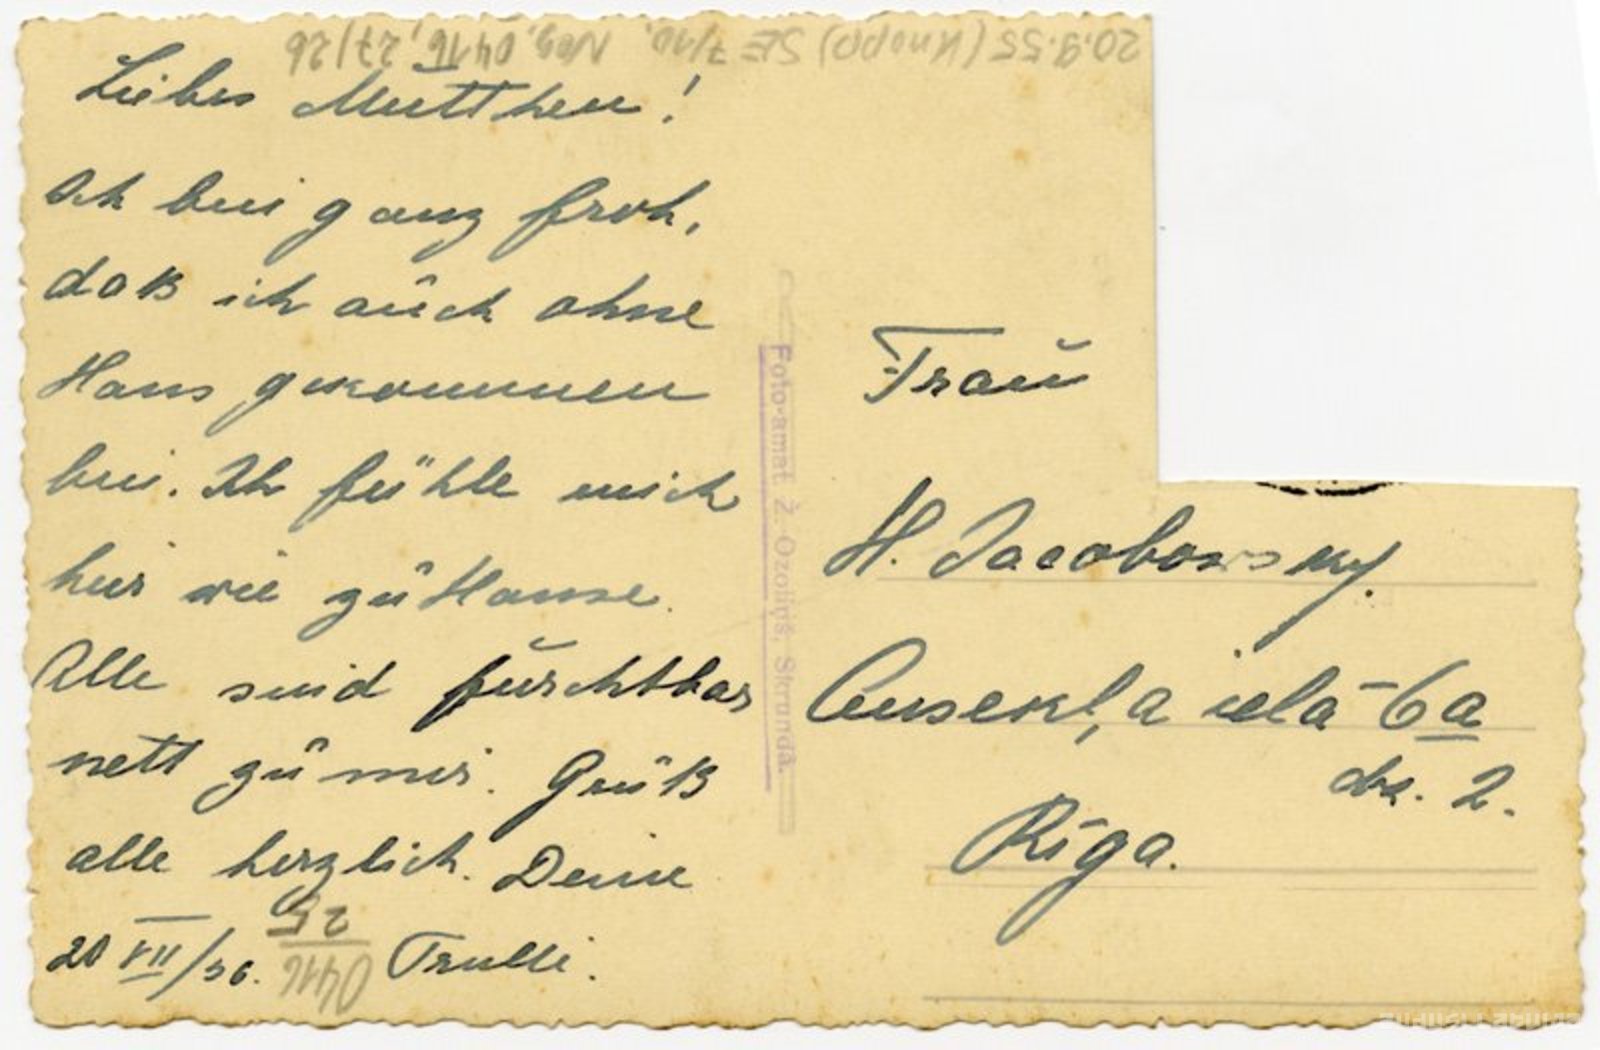 Liebes Muttchen!
Ich bin ganz froh,
daß ich auch ohne
Hans gekommen
bin. Ich fühle mich
hier wie zu Hause.
Alle sind furchtbar
nett zu mir. Grüß
alle herzlich. Deine
20 VII/36. Trulli.
25
0416
20.9.55 (Knopp) SE 7/10, Neg. 0416, 27/26
Foto-amat. Ž. Ozoliņš, Skrundā.
Frau
H. Jacobowsky.
Ausekļa ielā 6a
dz. 2.
Rīga.